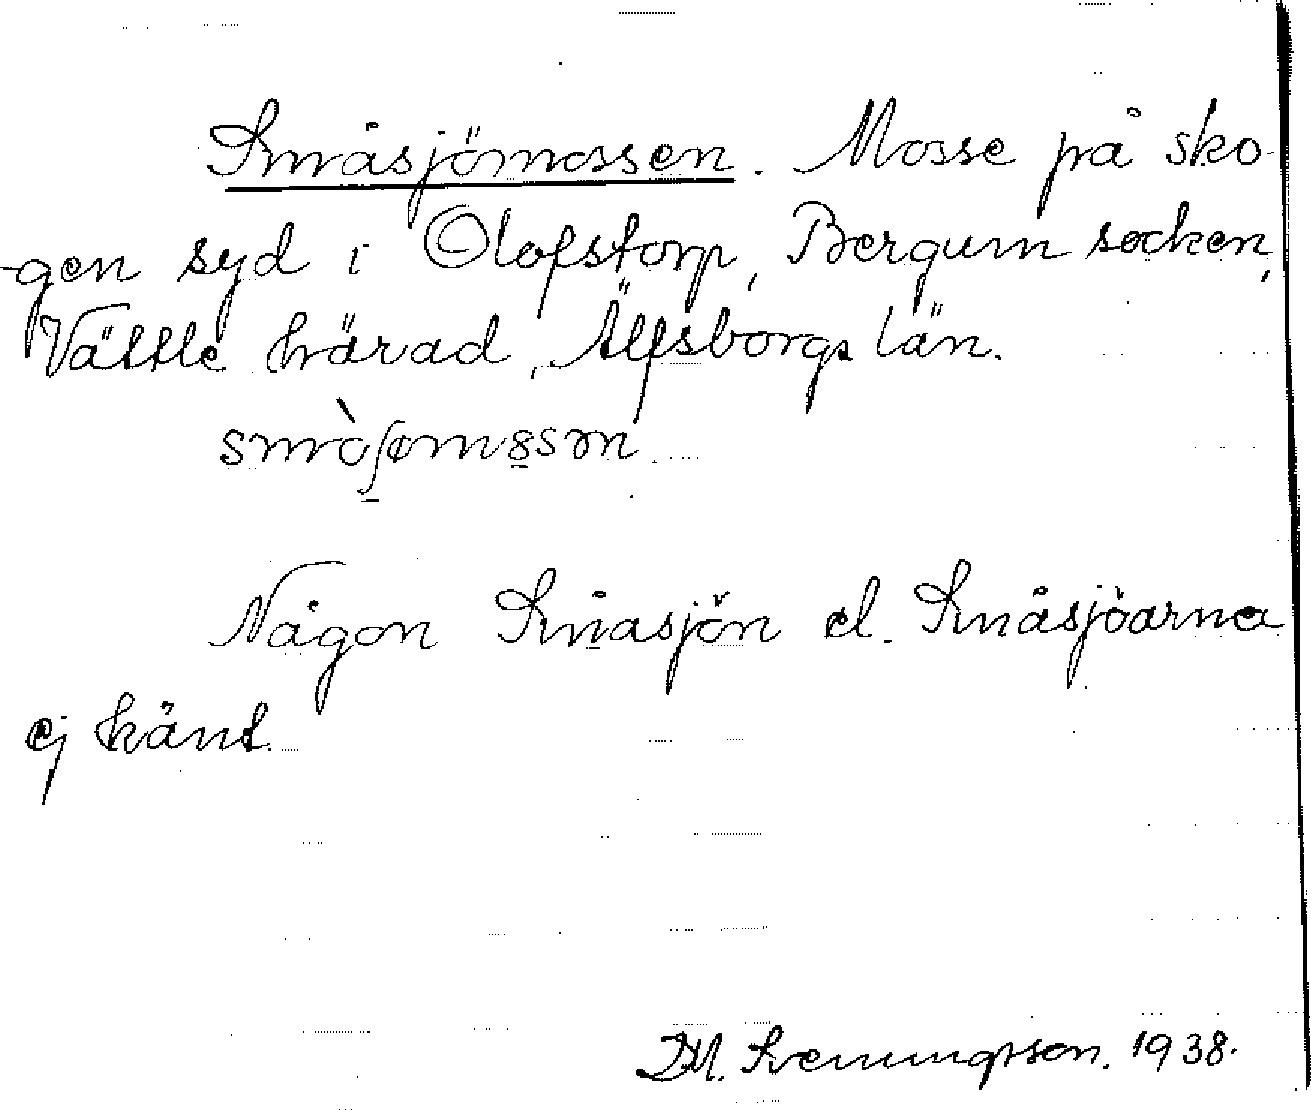 Småsjömossen. Mosse på sko-
gen syd i Olofstorp, Bergum socken,
Vättle härad, Älfsborgs län.
Någon Småsjön el. Småsjöarna
ej känt.
Svenungsson. 1938.